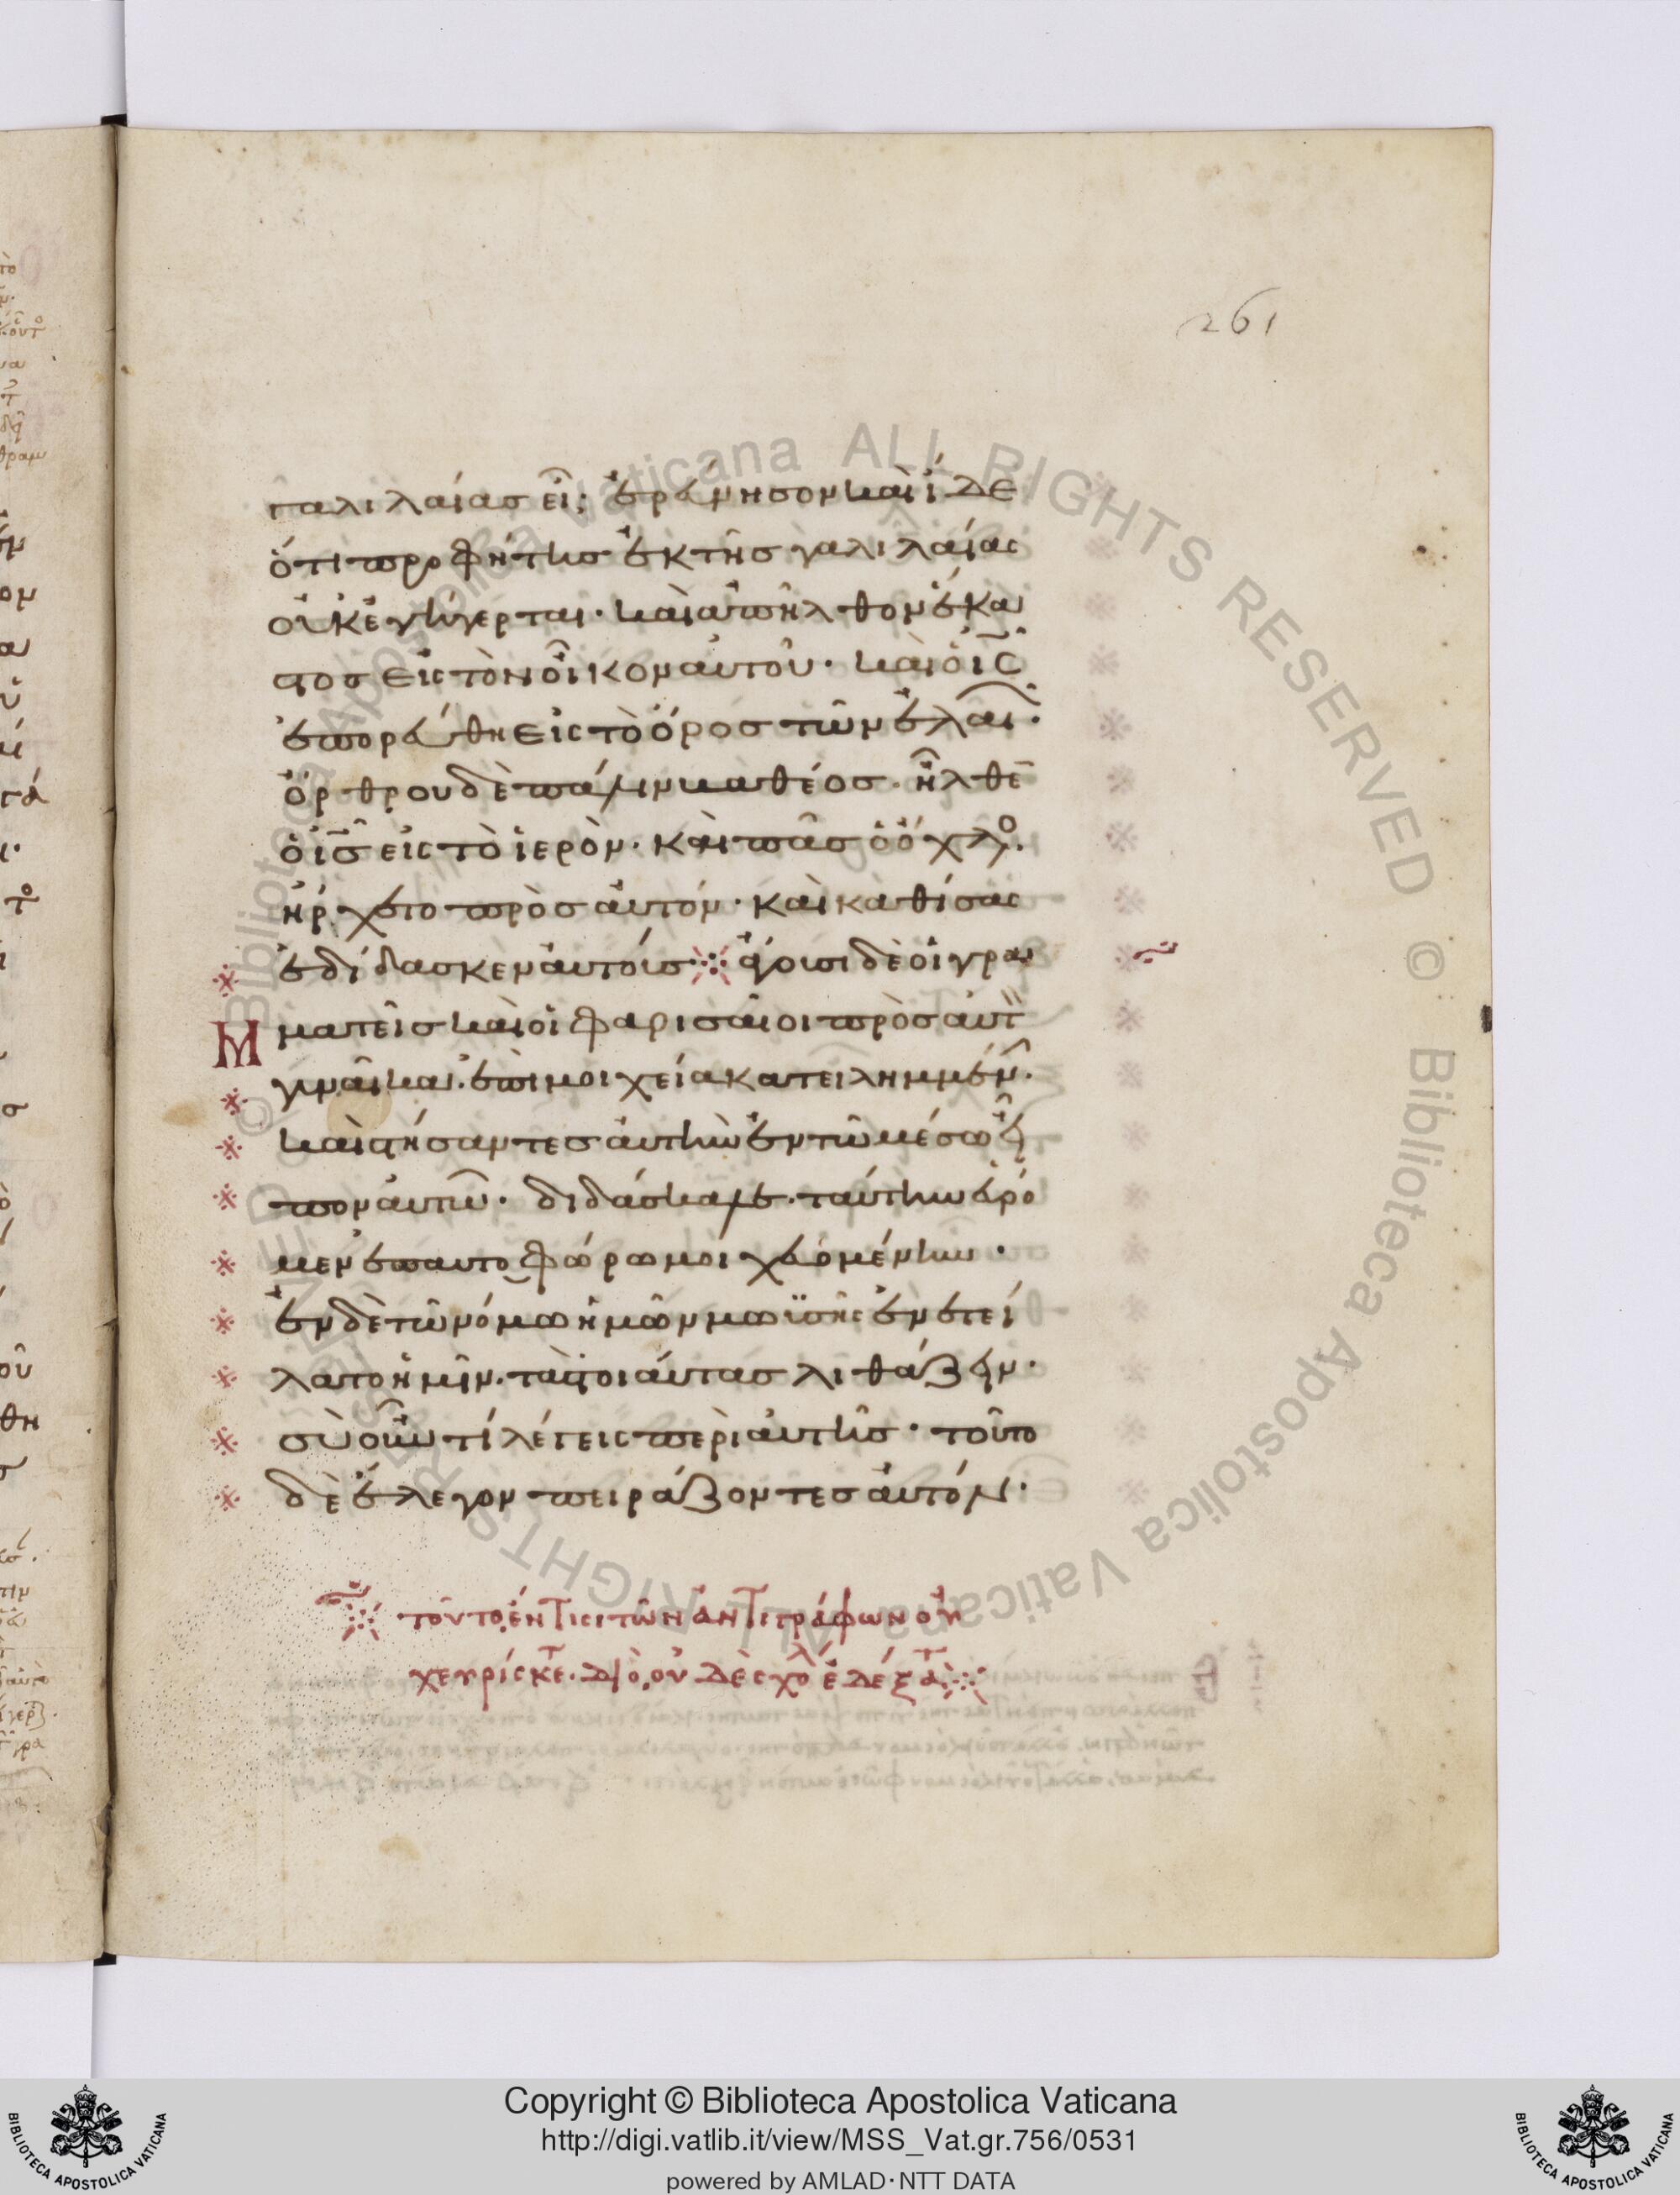 261
γαλιλαίας εἶ; ἐραύνησον καὶ ἴδε
ὅτι προφήτης ἐκ τῆς γαλιλαίας
οὐκ ἐγήγερται· καὶ ἀπῆλθον ἕκα
στος εἰς τὸν οἶκον αὐτοῦ· καὶ ὁ ις
ἐπορεύθη εἰς τὸ ὄρος τῶν ἐλαιῶν·
ὄρθρου δὲ πάλιν καθέος· ἦλθε
ὁ ις εἰς τὸ ἱερὸν· καὶ πᾶς ὁ ὄχλο
ἤρχετο πρὸς αὐτόν· καὶ καθίσας
ἐδίδασκεν αὐτοίς ※ φέρουσι δὲ οἱ γραμ
ματεῖς καὶ οἱ φαρισαῖοι πρὸς αὐτ
γυναῖκα· ἐπὶ μοιχεία κατειλημμέν·
καὶ στήσαντες αὐτὴν ἐν τῶ μέσω εἶ
πον αὐτῶ· διδάσκαλε· ταύτην εὕρο
μεν ἐπαυτοφώρω μοιχευομένην·
ἐν δὲ τῶ νόμω ἡμῶν μωϋσῆς ἐνετεί
λατο ἡμῖν· τὰς τοιαύτας λιθάζειν·
σὺ οὖν τί λέγεις περὶ αὐτῆς· τοῦτο
δὲ ἔλεγον πειράζοντες αὐτόν·
※ τοῦτο ἐν τισι τῶν ἀντιγράφων οὐ
χ εὑρίσκετ· διὸ, οὐδὲ σχολ ἐδέξατ※
Copyright © Biblioteca Apostolica Vaticana
http://digi.vatlib.it/view/MSS_Vat.gr.756/0531
powered by AMLAD·NTT DATA
BIBLIOTECA APOSTOLICA VATICANA
BIBLIOTECA APOSTOLICA VATICANA
© Biblioteca Apostolica Vaticana ALL RIGHTS RESERVED © Biblioteca Apostolica Vaticana ALL RIGHTS RESERVED